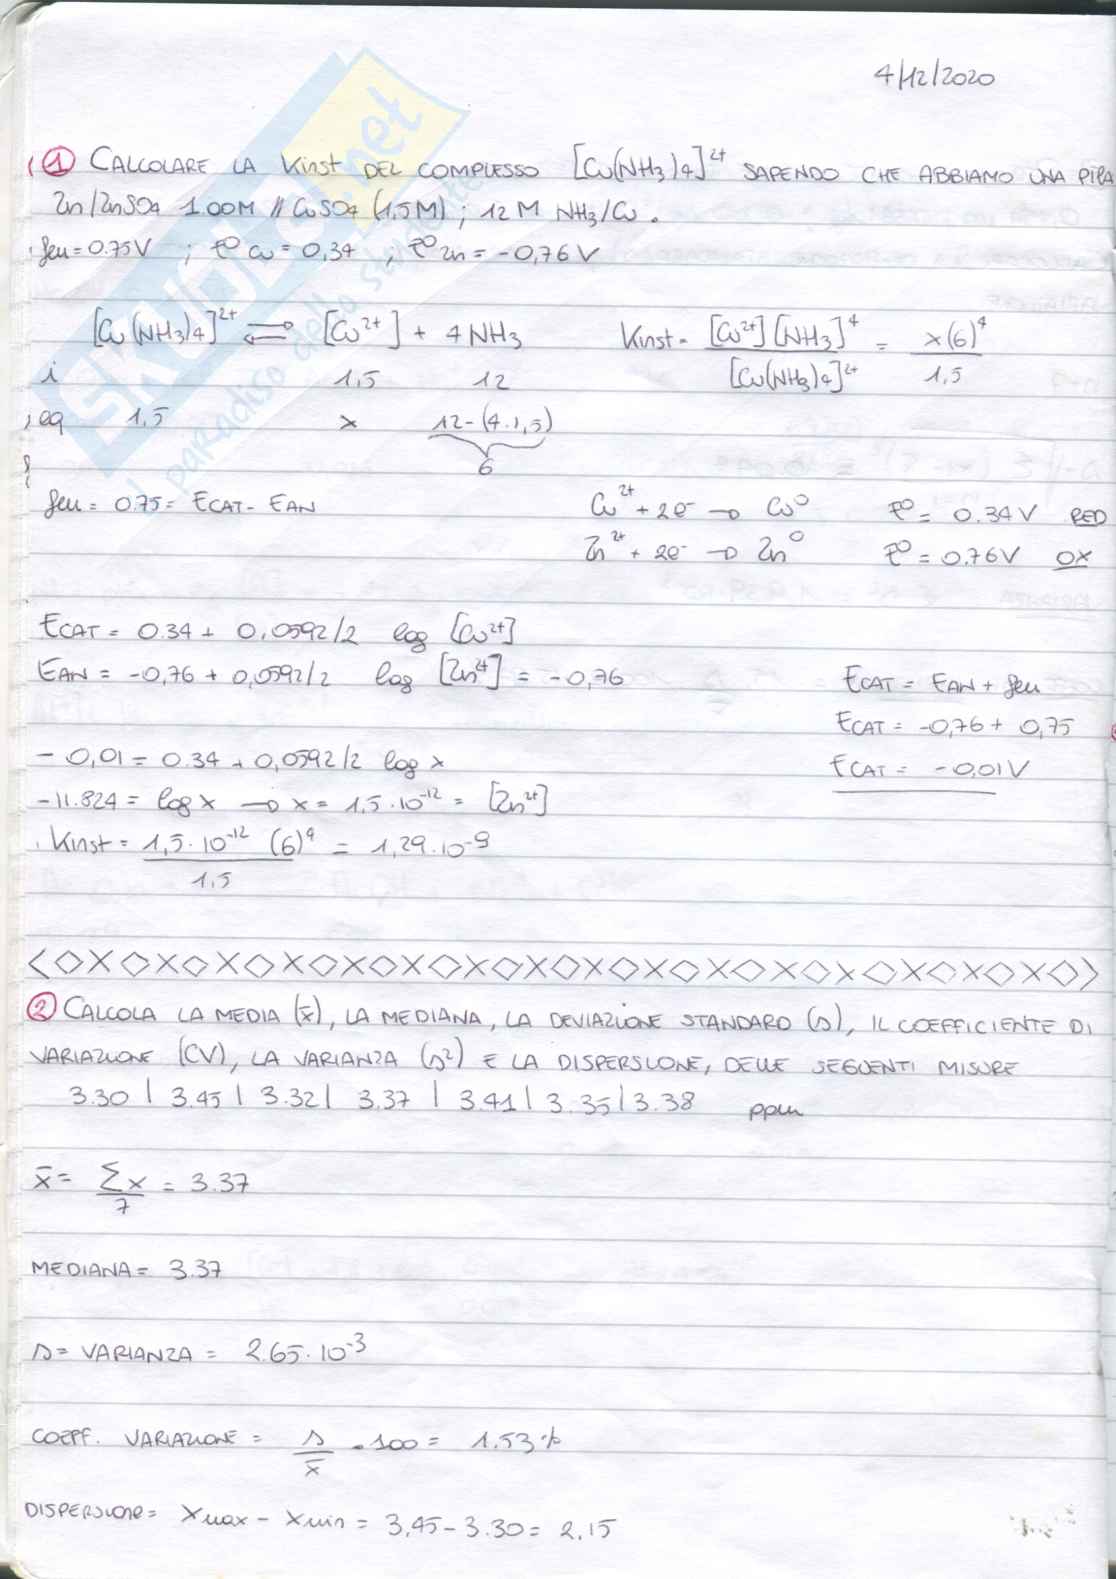 4/12/2020
① CALCOLARE LA Kinst DEL COMPLESSO [Cu(NH3)4]²⁺ SAPENDO CHE ABBIAMO UNA PILA
Zn/ZnSO4 1.00M // CuSO4 (1,5M) ; 12M NH3/Cu.
fem=0.75V ; E° Cu = 0,34 ; E° Zn = -0,76 V
[Cu(NH3)4]²⁺ ⇌ [Cu²⁺] + 4NH3 Kinst = [Cu²⁺][NH3]⁴ / [Cu(NH3)4]²⁺ = x(6)⁴ / 1,5
i 1,5 12
eq 1,5 x 12-(4·1,5)
6
fem = 0.75 = ECAT - EAN Cu²⁺ + 2e⁻ → Cu⁰ E° = 0.34V RED
Zn²⁺ + 2e⁻ → Zn⁰ E° = 0.76V OX
ECAT = 0.34 + 0,0592/2 log [Cu²⁺]
EAN = -0,76 + 0,0592/2 log [Zn²⁺] = -0,76 ECAT = EAN + fem
ECAT = -0,76 + 0,75
- 0,01 = 0.34 + 0,0592/2 log x ECAT = -0.01V
-11.824 = log x → x = 1,5·10⁻¹² = [Zn²⁺]
Kinst = 1,5·10⁻¹² (6)⁴ / 1,5 = 1,29·10⁻⁹
② CALCOLA LA MEDIA (x̄), LA MEDIANA, LA DEVIAZIONE STANDARD (s), IL COEFFICIENTE DI
VARIAZIONE (CV), LA VARIANZA (s²) E LA DISPERSIONE, DELLE SEGUENTI MISURE
3.30 | 3.45 | 3.32 | 3.37 | 3.41 | 3.35 | 3.38 ppm
x̄ = Σx / 7 = 3.37
MEDIANA = 3.37
s = VARIANZA = 2.65·10⁻³
COEFF. VARIAZIONE = s / x̄ · 100 = 1.53%
DISPERSIONE = xmax - xmin = 3,45 - 3.30 = 2.15
SKUOLA.net
il paradiso dello studente